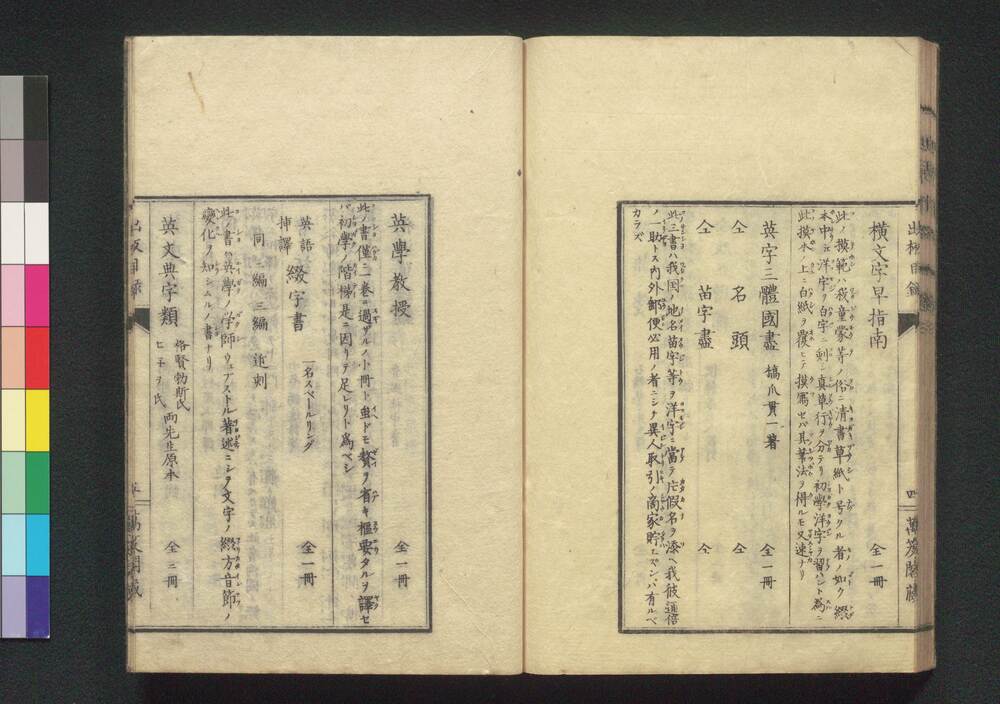 出板目録
四
萬笈閣藏
横文字早指南 全一冊
此ノ摸範ハ我童蒙等ノ俗ニ清書草紙ト号クル者ノ如ク綴
本中ニ洋字ヲ白字ニ刻シ真草行ヲ分テリ初學洋字ヲ習ハント為ニ
此摸本ノ上ニ白紙ヲ覆ヒテ摸寫セバ其筆法ヲ得ルモ又速ナリ
英字三體國盡 橋爪貫一著 全一冊
仝 名頭 仝
仝 苗字盡 仝
此三書ハ我国ノ地名苗字等ヲ洋字ニ當テ片假名ヲ添ヘ我彼通信
ノ一助トス内外郵便必用ノ者ニシテ異人取引ノ商家貯エズンバ有ルベ
カラズ
英學教授 全一冊
此ノ書僅ニ一巻ニ過ザルノ小冊ト虫ドモ贅ヲ省キ樞要タルヲ譯セ
バ初學ノ階梯是ニ因リテ足レリト為ベシ
英語挿譯 綴字書 一名スペールリング 全一冊
同 二編 三編 近刻
此ノ書ハ英學ノ学師ウェブストル著述ニシテ文字ノ綴方音節ノ
変化ヲ知シムルノ書ナリ
英文典字類 格賢勃斯氏 ヒ子ヲ氏 両先生原本 全二冊
出板目録